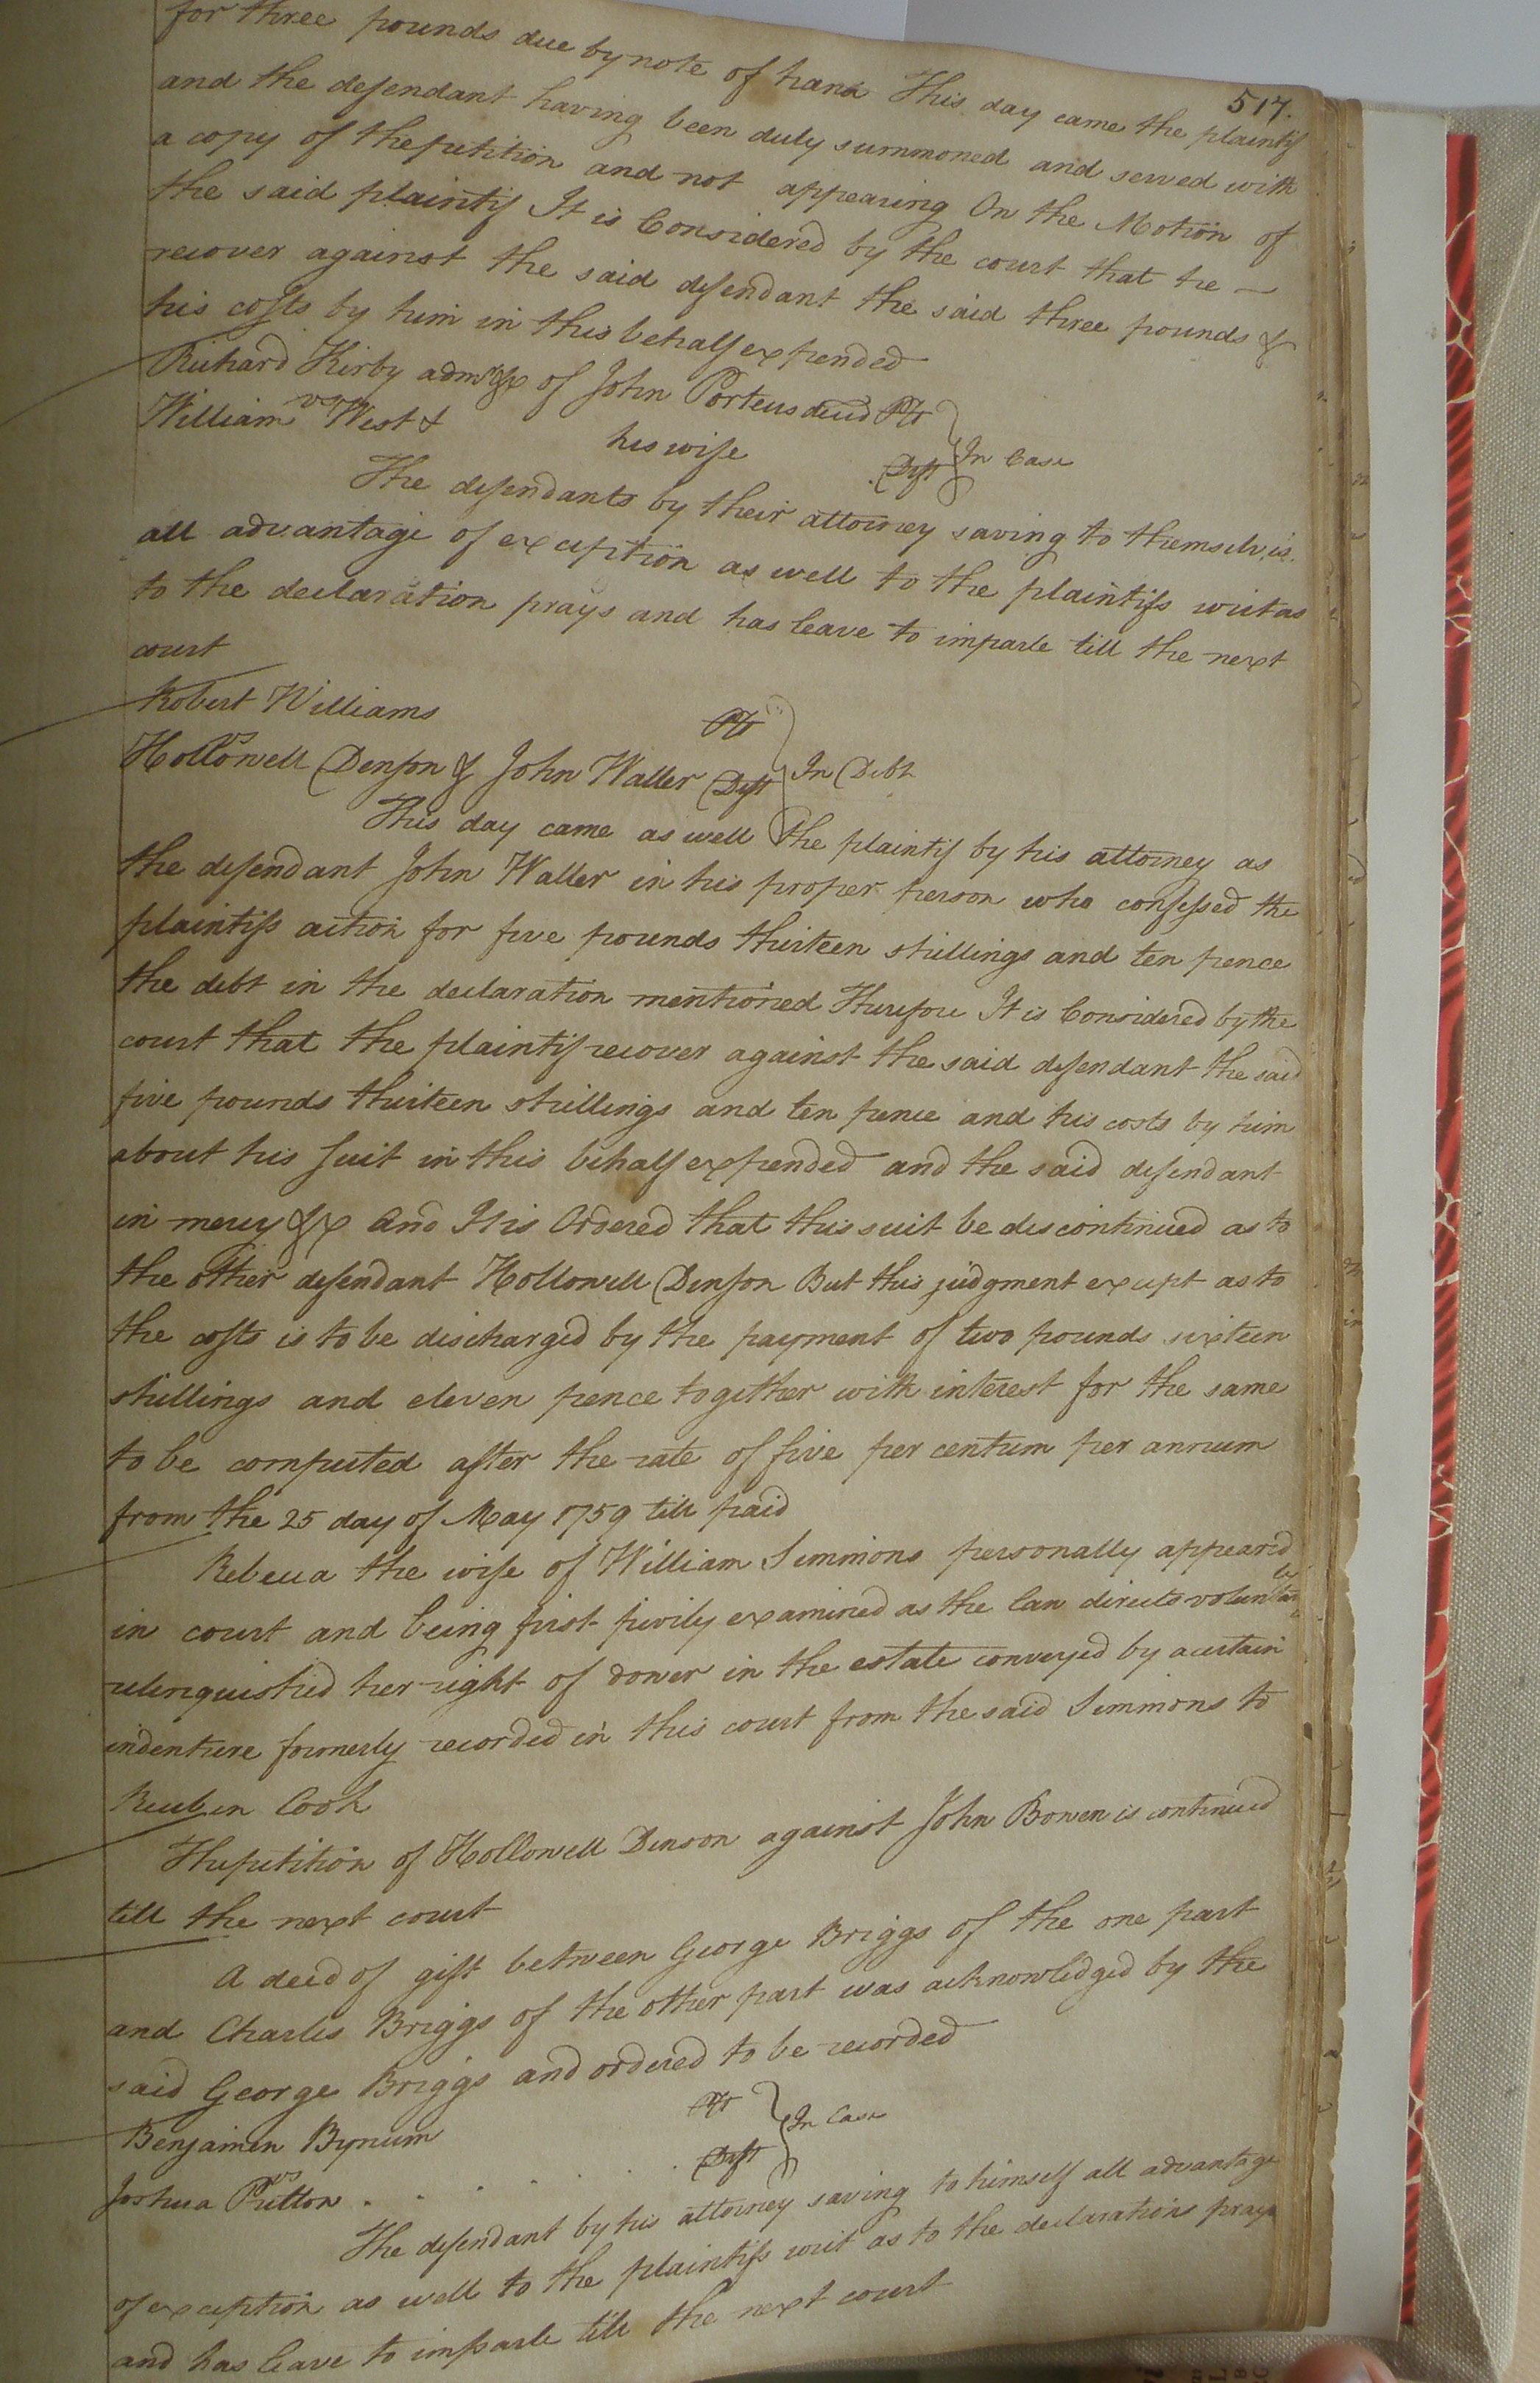 517.
for three pounds due by note of hand This day came the plaintif
and the defendant having been duly summoned and served with
a copy of the petition and not appearing On the Motion of
the said plaintif It is Considered by the court that he
recover against the said defendant the said three pounds &
his costs by him in this behalf expended
Richard Kirby adm &c of John Porteus decd Plt
vs
William West & his wife Deft
In Case
The defendants by their attorney saving to themselves
all advantage of exception as well to the plaintifs writ as
to the declaration prays and has leave to imparle till the next
court
Robert Williams Plt
vs
Hollowell Denson & John Waller Deft
In Debt
This day came as well the plaintif by his attorney as
the defendant John Waller in his proper person who confessed the
plaintifs action for five pounds thirteen shillings and ten pence
the debt in the declaration mentioned Therefore It is Considered by the
court that the plaintif recover against the said defendant the said
five pounds thirteen shillings and ten pence and his costs by him
about his suit in this behalf expended and the said defendant
in mercy &c And It is Ordered that this suit be discontinued as to
the other defendant Hollowell Denson But this judgment except as to
the costs is to be discharged by the payment of two pounds sixteen
shillings and eleven pence together with interest for the same
to be computed after the rate of five per centum per annum
from the 25 day of May 1759 till paid
Rebecca the wife of William Simmons personally appeared
in court and being first privily examined as the law directs voluntarily
relinquished her right of dower in the estate conveyed by a certain
indenture formerly recorded in this court from the said Simmons to
Reuben Cook
The petition of Hollowell Denson against John Bowen is continued
till the next court
A deed of gift between George Briggs of the one part
and Charles Briggs of the other part was acknowledged by the
said George Briggs and ordered to be recorded
Benjamin Bynum Plt
vs
Joshua Pritton Deft
In Case
The defendant by his attorney saving to himself all advantage
of exception as well to the plaintifs writ as to the declarations prays
and has leave to imparle till the next court